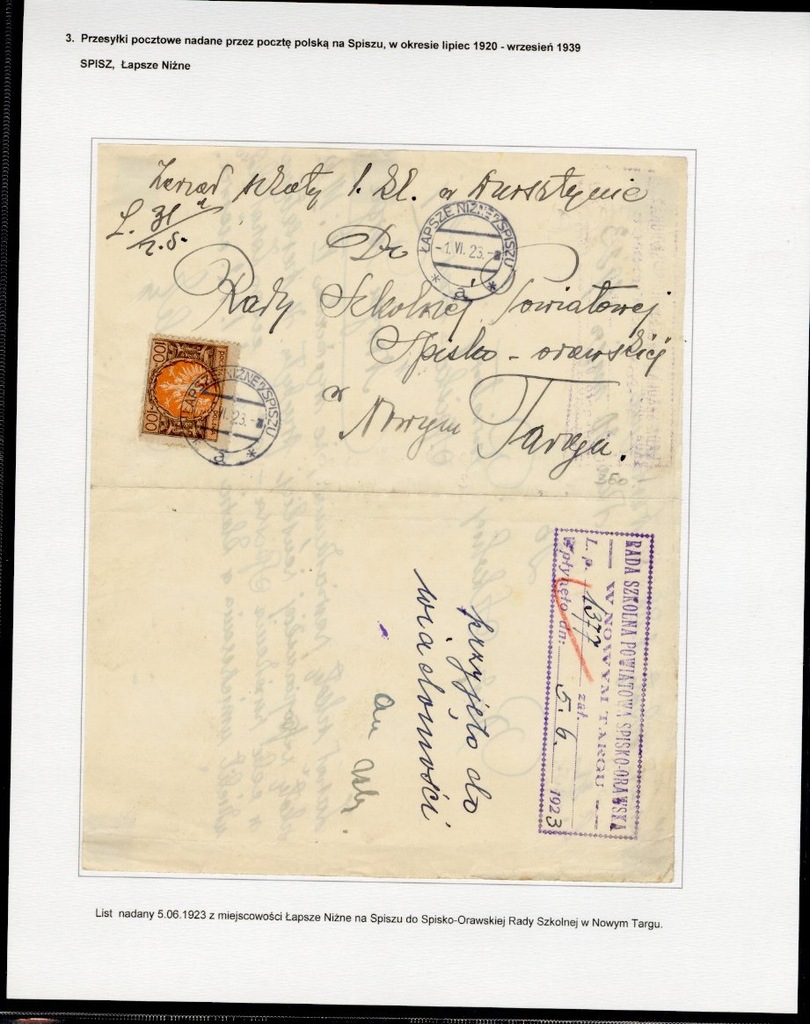 3. Przesyłki pocztowe nadane przez pocztę polską na Spiszu, w okresie lipiec 1920 - wrzesień 1939
SPISZ, Łapsze Niżne
Zarząd szkoły 1. kl. w Dursztynie
L. 31
Do
Rady Szkolnej Powiatowej
Spisko - orawskiej
w
Nowym Targu.
ŁAPSZE NIŻNE/SPISZU
-1. VI. 23.-
* a *
100 100
ŁAPSZE NIŻNE/SPISZU
VI. 23.-
a *
360
RADA SZKOLNA POWIATOWA SPISKO-ORAWSKA
— W NOWYM TARGU —
L. p. 1377 zał.
Wpłynęło dn: 5. 6. 1923
przyjęto do
wiadomości
List nadany 5.06.1923 z miejscowości Łapsze Niżne na Spiszu do Spisko-Orawskiej Rady Szkolnej w Nowym Targu.